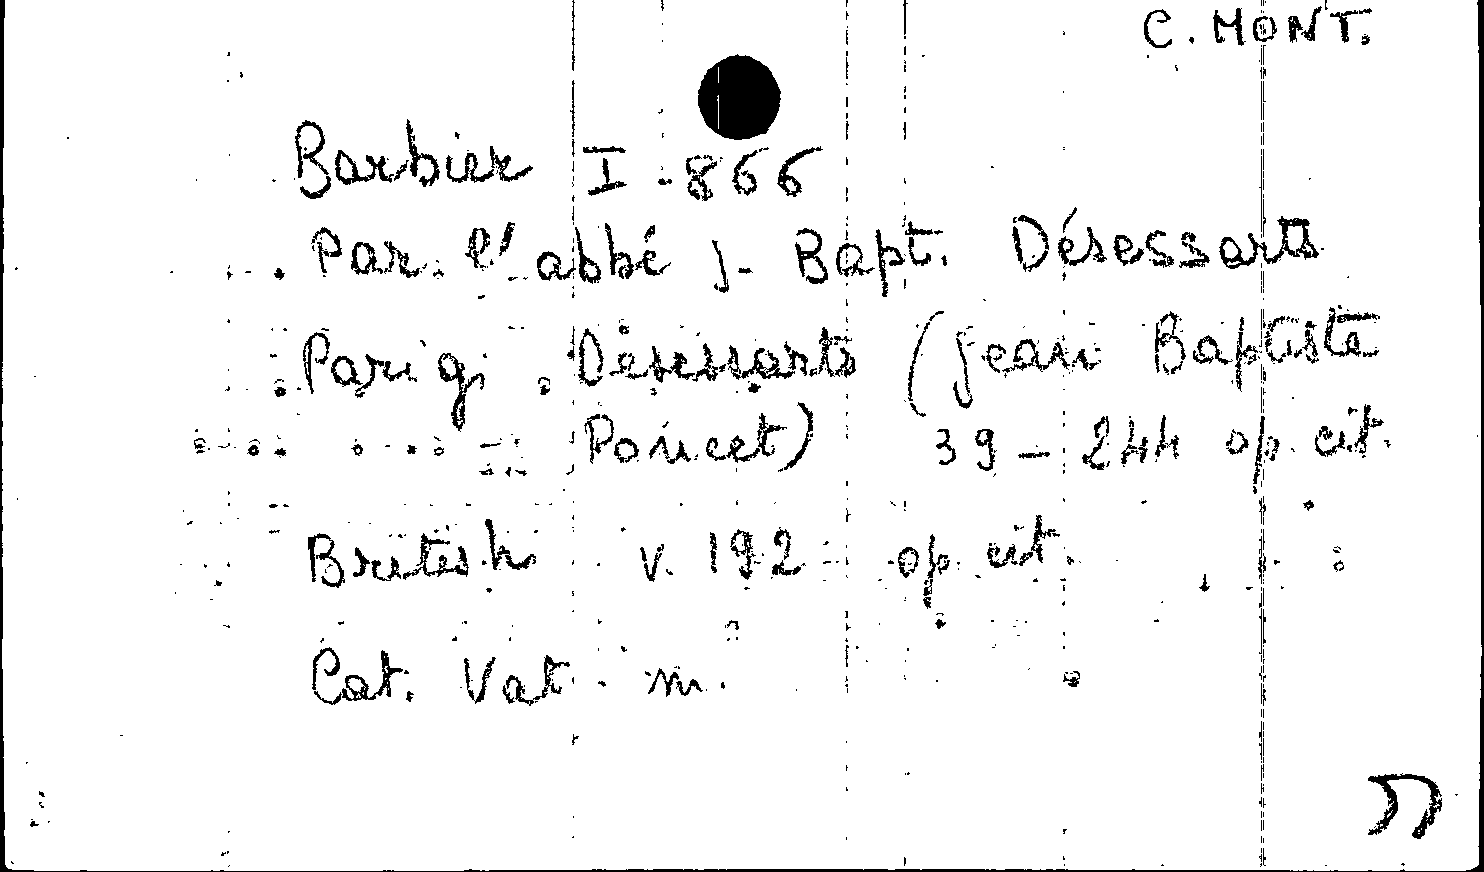 C. MONT.
Barbier I-866
Par l'abbé J-Bapt. Désessarts
Parigi. Désessarts (Jean Baptiste
Poncet) 39-244 op. cit.
British v. 192 op cit.
Cat. Vat. m.